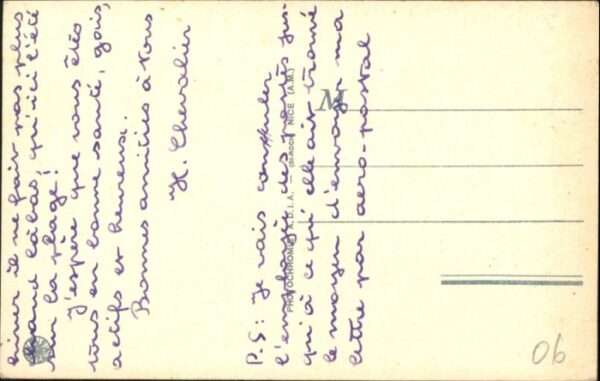 hiver il ne fait pas plus
chaud là bas, qu'ici l'été
sur la plage!
J'espère que vous êtes
tous en bonne santé, gais,
actifs et heureux.
Bonnes amitiés à tous
H. Chevalier
P.S: Je vais consulter
l'employée des postes jus-
qu'à ce qu'elle ait trouvé
le moyen d'envoyer ma
lettre par aéro-postal
M
PHOTOCHROMIE A.D.I.A. NICE (A.M.)
06